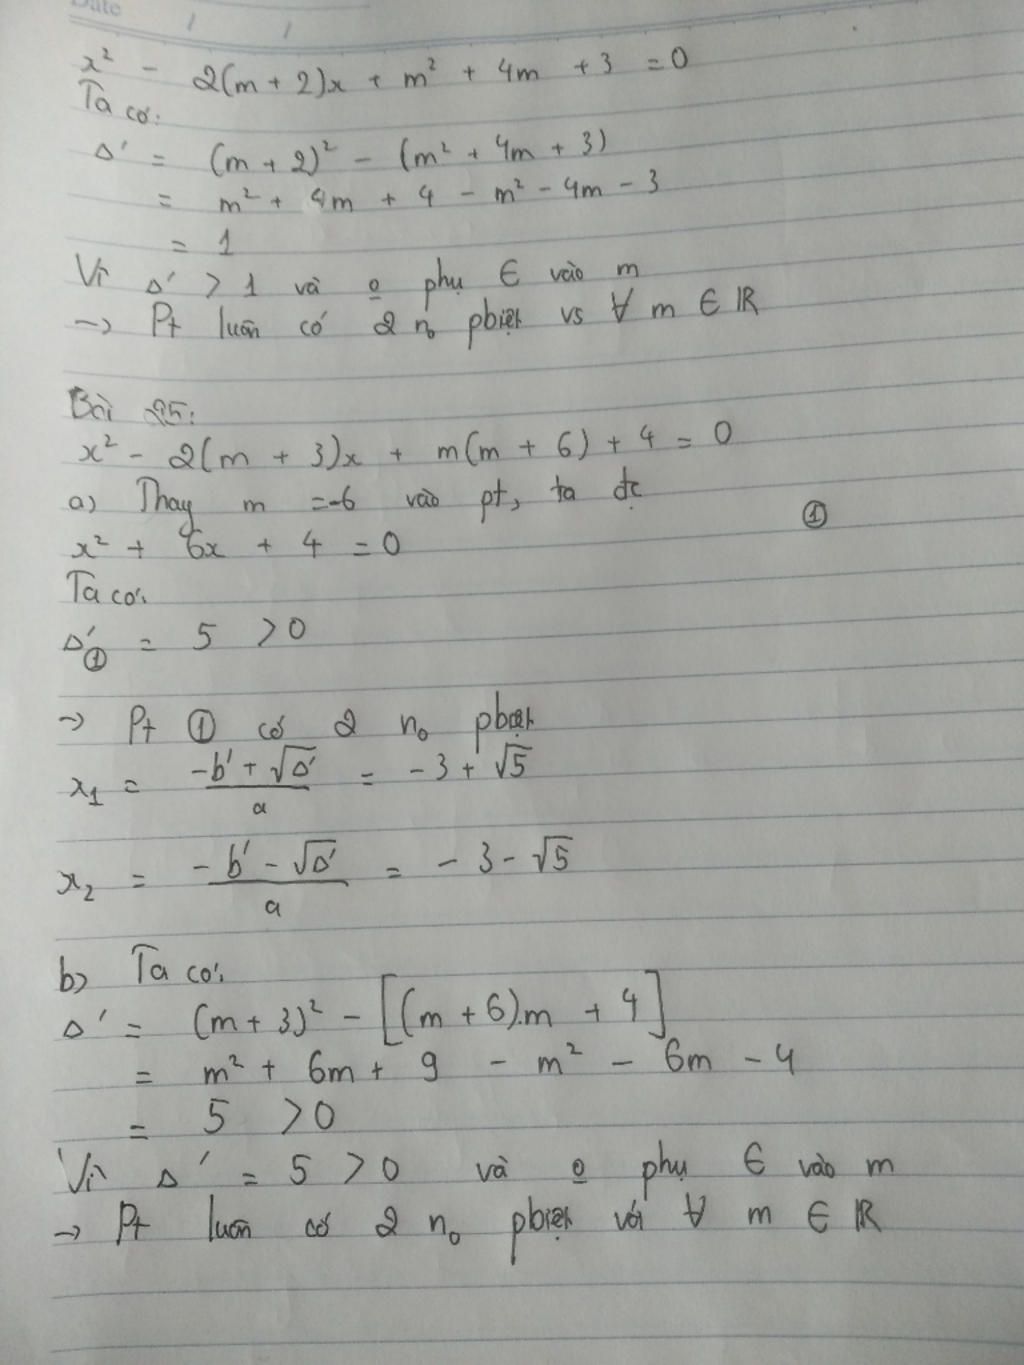 Date / /
x² - 2(m + 2)x + m² + 4m + 3 = 0
Ta có:
Δ' = (m + 2)² - (m² + 4m + 3)
= m² + 4m + 4 - m² - 4m - 3
= 1
Vì Δ' > 1 và o phụ ∈ vào m
→ Pt luôn có 2 no pbiệt vs ∀ m ∈ ℝ
Bài 25:
x² - 2(m + 3)x + m(m + 6) + 4 = 0
a) Thay m = -6 vào pt, ta đc
x² + 6x + 4 = 0 ①
Ta có:
Δ'① = 5 > 0
→ Pt ① có 2 no pbiệt
x₁ = (-b' + √Δ')/a = -3 + √5
x₂ = (-b' - √Δ')/a = -3 - √5
b) Ta có:
Δ' = (m + 3)² - [(m + 6).m + 4]
= m² + 6m + 9 - m² - 6m - 4
= 5 > 0
Vì Δ' = 5 > 0 và o phụ ∈ vào m
→ Pt luôn có 2 no pbiệt với ∀ m ∈ ℝ